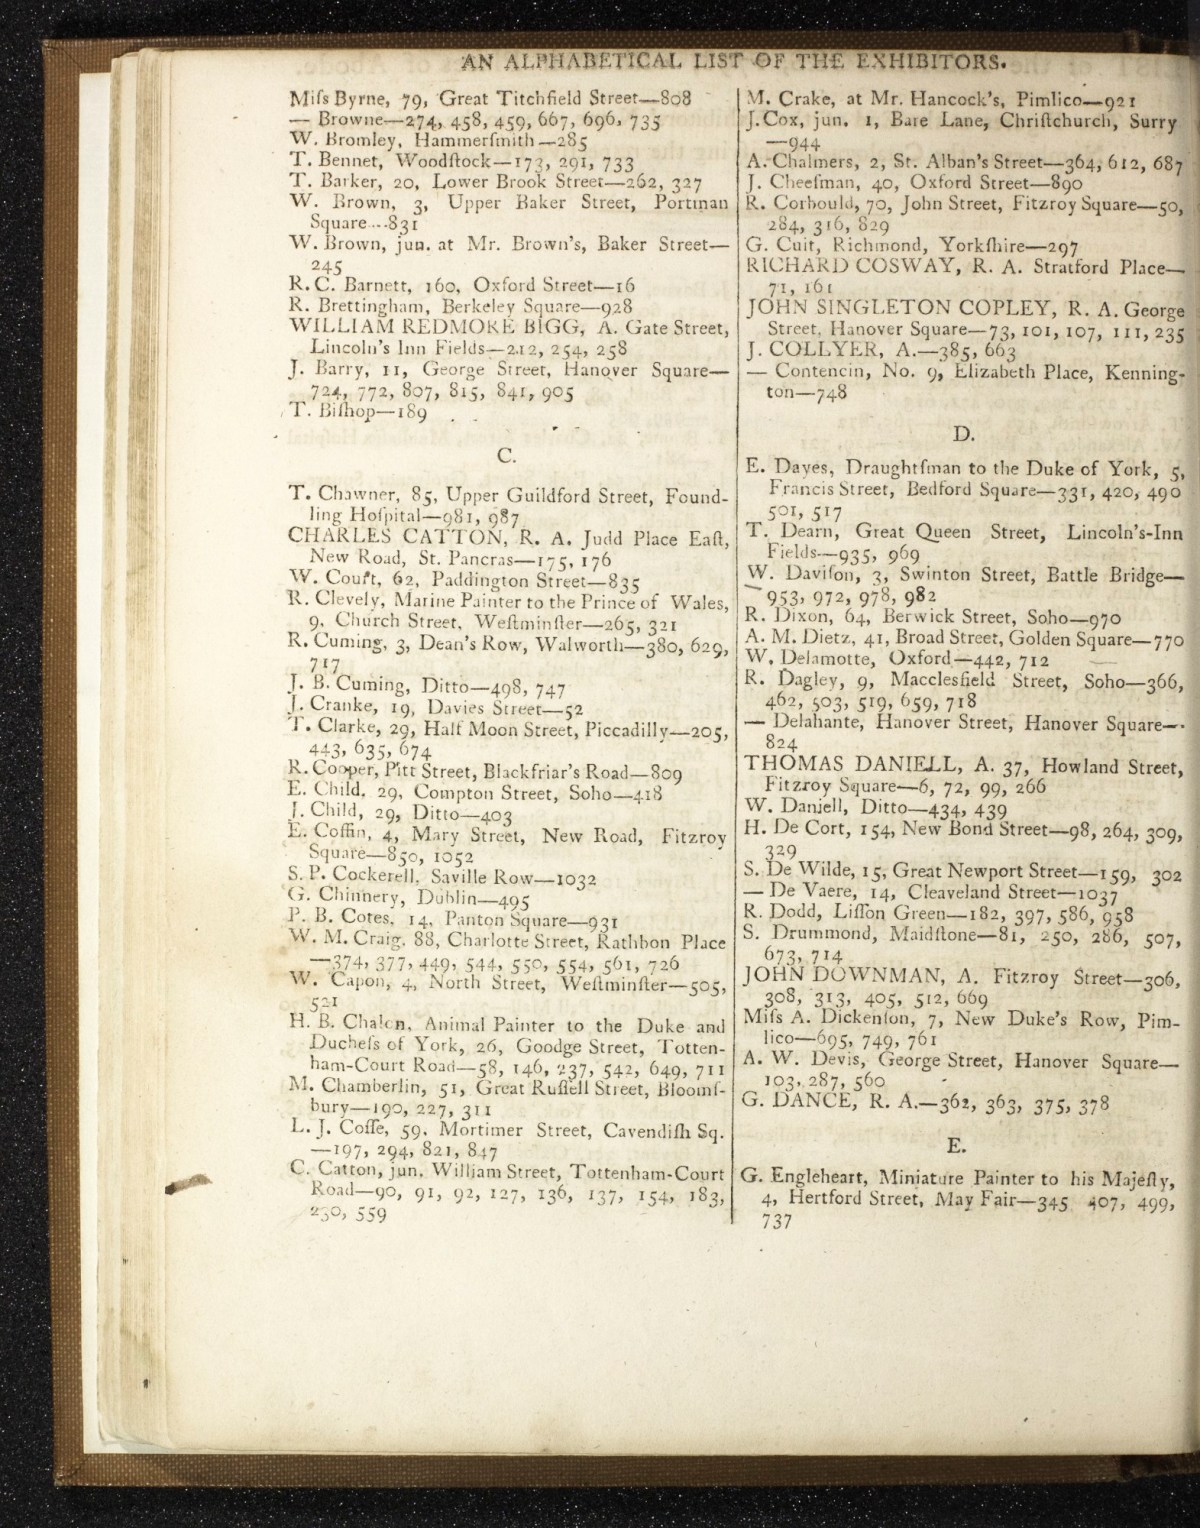 AN ALPHABETICAL LIST OF THE EXHIBITORS.
Miſs Byrne, 79, Great Titchfield Street—808
— Browne—274, 458, 459, 667, 696, 735
W. Bromley, Hammerſmith—285
T. Bennet, Woodſtock—173, 291, 733
T. Barker, 20, Lower Brook Street—262, 327
W. Brown, 3, Upper Baker Street, Portman
Square---831
W. Brown, jun. at Mr. Brown's, Baker Street—
245
R. C. Barnett, 160, Oxford Street—16
R. Brettingham, Berkeley Square—928
WILLIAM REDMORE BIGG, A. Gate Street,
Lincoln's Inn Fields—212, 254, 258
J. Barry, 11, George Street, Hanover Square—
724, 772, 807, 815, 841, 905
T. Biſhop—189
C.
T. Chawner, 85, Upper Guildford Street, Found-
ling Hoſpital—981, 987
CHARLES CATTON, R. A. Judd Place Eaſt,
New Road, St. Pancras—175, 176
W. Court, 62, Paddington Street—835
R. Clevely, Marine Painter to the Prince of Wales,
9, Church Street, Weſtminſter—265, 321
R. Cuming, 3, Dean's Row, Walworth—380, 629,
717
J. B. Cuming, Ditto—498, 747
J. Cranke, 19, Davies Street—52
T. Clarke, 29, Half Moon Street, Piccadilly—205,
443, 635, 674
R. Cooper, Pitt Street, Blackfriar's Road—809
E. Child, 29, Compton Street, Soho—418
J. Child, 29, Ditto—403
E. Coffin, 4, Mary Street, New Road, Fitzroy
Square—850, 1052
S. P. Cockerell, Saville Row—1032
G. Chinnery, Dublin—495
P. B. Cotes, 14, Panton Square—931
W. M. Craig, 88, Charlotte Street, Rathbon Place
—374, 377, 449, 544, 550, 554, 561, 726
W. Capon, 4, North Street, Weſtminſter—505,
521
H. B. Chalon, Animal Painter to the Duke and
Ducheſs of York, 26, Goodge Street, Totten-
ham-Court Road—58, 146, 237, 542, 649, 711
M. Chamberlin, 51, Great Ruſſell Street, Bloomſ-
bury—190, 227, 311
L. J. Coſſe, 59, Mortimer Street, Cavendiſh Sq.
—197, 294, 821, 847
C. Catton, jun. William Street, Tottenham-Court
Road—90, 91, 92, 127, 136, 137, 154, 183,
230, 559
M. Crake, at Mr. Hancock's, Pimlico—921
J. Cox, jun. 1, Bare Lane, Chriſtchurch, Surry
—944
A. Chalmers, 2, St. Alban's Street—364, 612, 687
J. Cheeſman, 40, Oxford Street—890
R. Corbould, 70, John Street, Fitzroy Square—50,
284, 316, 829
G. Cuit, Richmond, Yorkſhire—297
RICHARD COSWAY, R. A. Stratford Place—
71, 161
JOHN SINGLETON COPLEY, R. A. George
Street, Hanover Square—73, 101, 107, 111, 235
J. COLLYER, A.—385, 663
— Contencin, No. 9, Elizabeth Place, Kenning-
ton—748
D.
E. Dayes, Draughtſman to the Duke of York, 5,
Francis Street, Bedford Square—331, 420, 490
501, 517
T. Dearn, Great Queen Street, Lincoln's-Inn
Fields—935, 969
W. Daviſon, 3, Swinton Street, Battle Bridge—
953, 972, 978, 982
R. Dixon, 64, Berwick Street, Soho—970
A. M. Dietz, 41, Broad Street, Golden Square—770
W. Delamotte, Oxford—442, 712
R. Dagley, 9, Macclesfield Street, Soho—366,
462, 503, 519, 659, 718
— Delahante, Hanover Street, Hanover Square—
824
THOMAS DANIELL, A. 37, Howland Street,
Fitzroy Square—6, 72, 99, 266
W. Daniell, Ditto—434, 439
H. De Cort, 154, New Bond Street—98, 264, 309,
329
S. De Wilde, 15, Great Newport Street—159, 302
— De Vaere, 14, Cleaveland Street—1037
R. Dodd, Liſſon Green—182, 397, 586, 958
S. Drummond, Maidſtone—81, 250, 286, 507,
673, 714
JOHN DOWNMAN, A. Fitzroy Street—306,
308, 313, 405, 512, 669
Miſs A. Dickenſon, 7, New Duke's Row, Pim-
lico—695, 749, 761
A. W. Devis, George Street, Hanover Square—
103, 287, 560
G. DANCE, R. A.—362, 363, 375, 378
E.
G. Engleheart, Miniature Painter to his Majeſty,
4, Hertford Street, May Fair—345 407, 499,
737